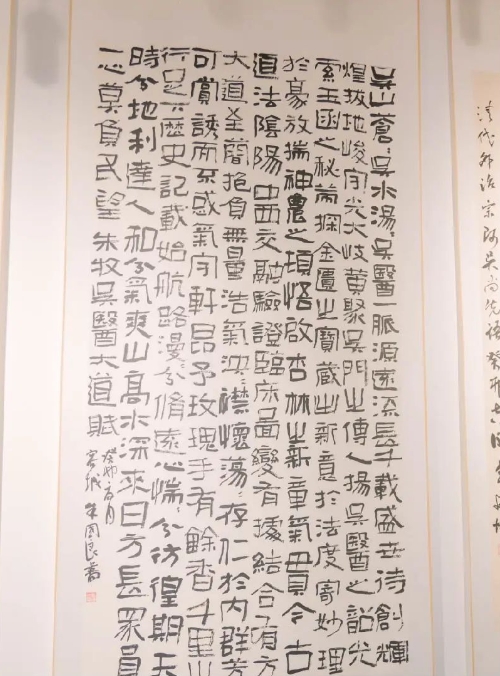 吴山蒼〻吴水湯〻吴醫一脈源遠流長千載盛世待創輝
煌拔地峻宇光大岐黄聚吴門之傳人揚吴醫之韶光
索玉函之秘蘊探金匱之寶藏出新意於法度寄妙理
於豪放揣神農之頓悟啟杏林之新章氣貫今古
道法陰陽中西交融驗證臨床啚變有據結合有方
大道至簡抱負無量浩氣泱〻襟懷蕩〻存仁於内群芳
可賞誘而不惑氣宇軒昂予玫瑰手有餘香千里之
行足下歷史記載始航路漫〻兮脩遠心惴〻兮彷徨期天
時兮地利達人和兮氣爽山高水深來日方長眾員
一心莫負民望 朱牧吴醫大道賦
癸卯 月
朱國良書
清代外治宗師吴尚先 癸卯